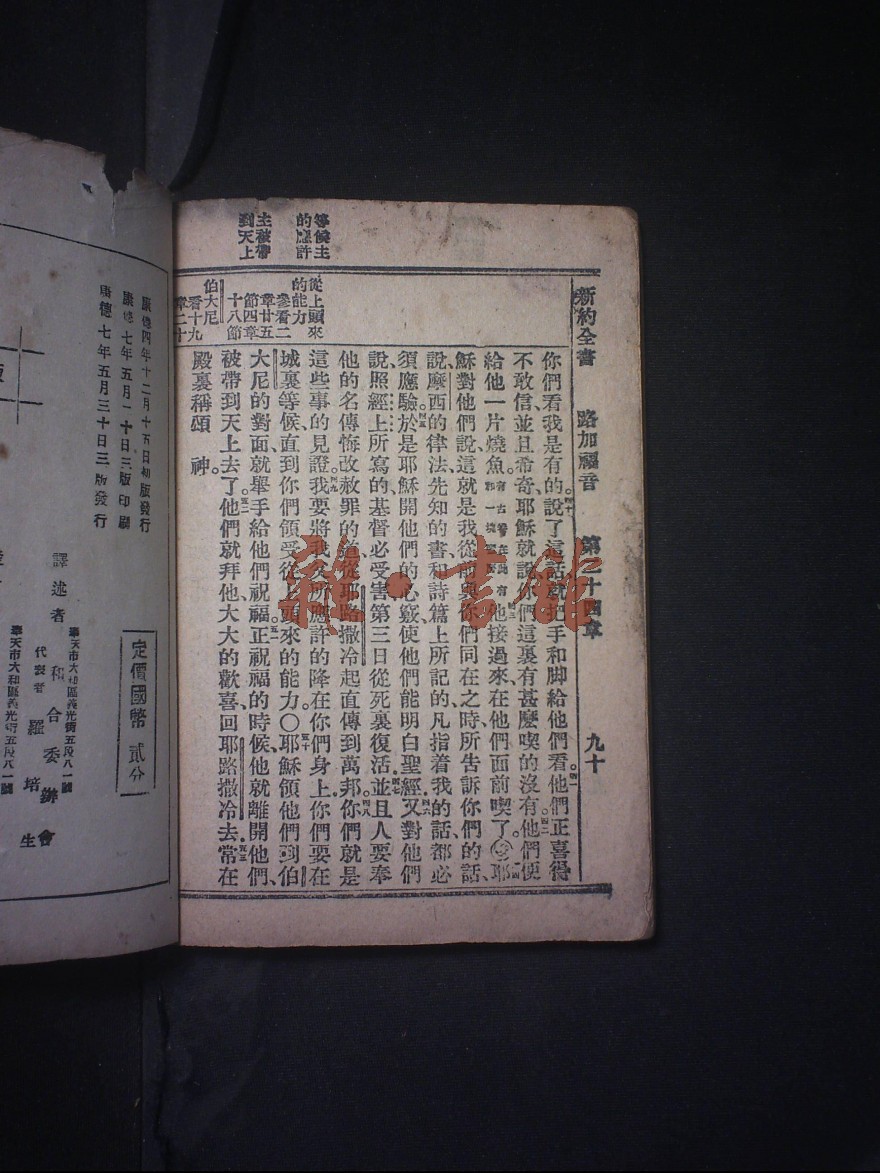 新約全書 路加福音 第二十四章 九十
等候主
的應許
主被帶
到天上
從上頭來
的能力
參看二
章廿五
節四章
十八節
伯大尼
看十九
章二十
你們看、我是有的。四十說了這話、就把手和脚給他們看。四一他們正喜得
不敢信、並且希奇、耶穌就說、你們這裏有甚麼喫的沒有。四二他們便
給他一片燒魚。有古卷在此有 四三他接過來、在他們面前喫了。四四耶
穌對他們說、這就是我從前與你們同在之時、所告訴你們的話、
說、摩西的律法、先知的書、和詩篇上所記的、凡指着我的話、都必
須應驗。四五於是耶穌開他們的心竅、使他們能明白聖經.四六又對他們
說、照經上所寫的、基督必受害、第三日從死裏復活.四七並且人要奉
他的名傳悔改赦罪的道、從耶路撒冷起直傳到萬邦.四八你們就是
這些事的見證。四九我要將我父所應許的降在你們身上.你們要在
城裏等候、直到你們領受從上頭來的能力。○五十耶穌領他們到伯
大尼的對面、就舉手給他們祝福。五一正祝福的時候、他就離開他們、
被帶到天上去了。五二他們就拜他、大大的歡喜、回耶路撒冷去.五三常在
殿裏稱頌 神。
康德四年十二月十五日初版發行
康德七年五月二十日三版印刷
康德七年五月三十日三版發行
版
譯述者 和合委辦會
代表者 羅培生
奉天市大和區義光街五段八一號
奉天市大和區義光街五段八一號
定價國幣 貳分
雜·書館